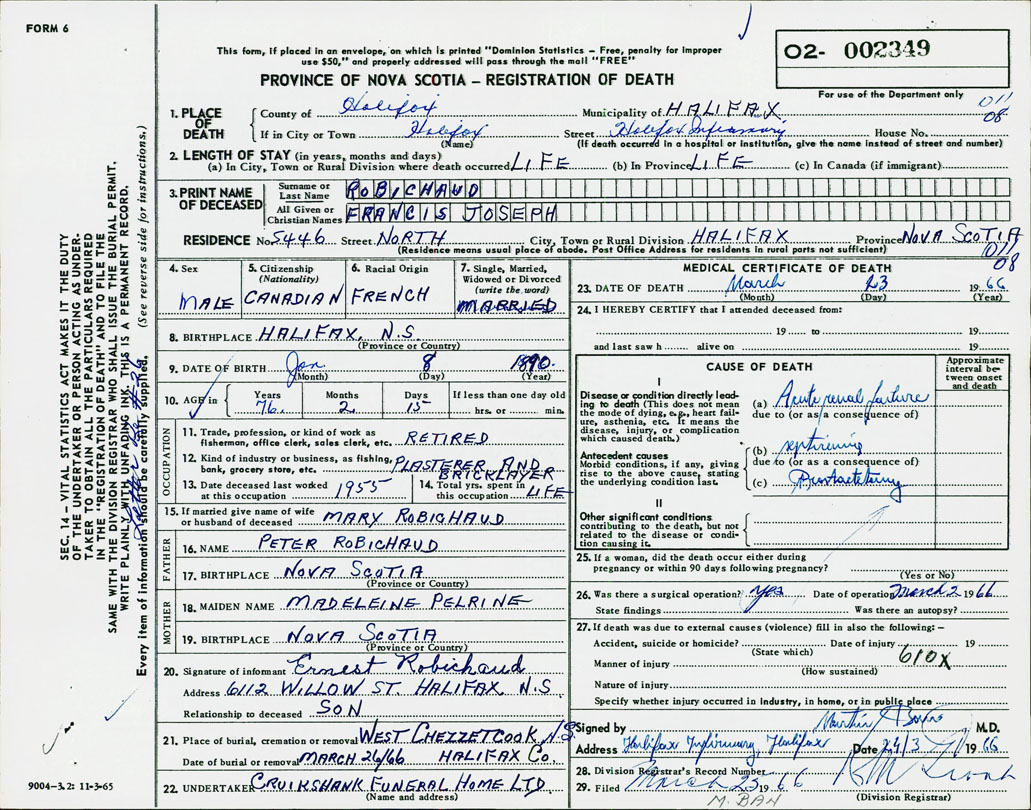 FORM 6
This form, if placed in an envelope, on which is printed "Dominion Statistics – Free, penalty for improper
use $50," and properly addressed will pass through the mail "FREE"
PROVINCE OF NOVA SCOTIA – REGISTRATION OF DEATH
O2- 002349
For use of the Department only
011
08
1. PLACE OF DEATH
County of Halifax Municipality of HALIFAX
If in City or Town Halifax Street Halifax Infirmary House No.
(Name) (If death occurred in a hospital or institution, give the name instead of street and number)
2. LENGTH OF STAY (in years, months and days)
(a) In City, Town or Rural Division where death occurred LIFE (b) In Province LIFE (c) In Canada (if immigrant)
3. PRINT NAME OF DECEASED
Surname or Last Name ROBICHAUD
All Given or Christian Names FRANCIS JOSEPH
RESIDENCE No. 5446 Street NORTH City, Town or Rural Division HALIFAX Province NOVA SCOTIA
(Residence means usual place of abode. Post Office Address for residents in rural parts not sufficient)
011
08
4. Sex
MALE
5. Citizenship (Nationality)
CANADIAN
6. Racial Origin
FRENCH
7. Single, Married, Widowed or Divorced (write the word)
MARRIED
8. BIRTHPLACE HALIFAX, N.S.
(Province or Country)
9. DATE OF BIRTH Jan 8 1890
(Month) (Day) (Year)
10. AGE in Years Months Days If less than one day old
76 2 15 hrs. or min.
OCCUPATION
11. Trade, profession, or kind of work as
fisherman, office clerk, sales clerk, etc. RETIRED
12. Kind of industry or business, as fishing,
bank, grocery store, etc. PLASTERER AND
BRICKLAYER
13. Date deceased last worked
at this occupation 1955
14. Total yrs. spent in
this occupation LIFE
15. If married give name of wife
or husband of deceased MARY ROBICHAUD
FATHER
16. NAME PETER ROBICHAUD
17. BIRTHPLACE NOVA SCOTIA
(Province or Country)
MOTHER
18. MAIDEN NAME MADELEINE PELRINE
19. BIRTHPLACE NOVA SCOTIA
(Province or Country)
20. Signature of informant Ernest Robichaud
Address 6112 WILLOW ST. HALIFAX, N.S.
Relationship to deceased SON
21. Place of burial, cremation or removal WEST CHEZZETCOOK, N.S.
Date of burial or removal MARCH 26/66 HALIFAX Co.
22. UNDERTAKER CRUIKSHANK FUNERAL HOME LTD.
(Name and address)
MEDICAL CERTIFICATE OF DEATH
23. DATE OF DEATH March 23 1966
(Month) (Day) (Year)
24. I HEREBY CERTIFY that I attended deceased from:
19 to 19
and last saw h alive on 19
CAUSE OF DEATH
Approximate interval between onset and death
I
Disease or condition directly lead-
ing to death (This does not mean
the mode of dying, e.g., heart fail-
ure, asthenia, etc. It means the
disease, injury, or complication
which caused death.)
(a) Acute renal failure
due to (or as a consequence of)
Antecedent causes
Morbid conditions, if any, giving
rise to the above cause, stating
the underlying condition last.
(b)
due to (or as a consequence of)
(c)
II
Other significant conditions
contributing to the death, but not
related to the disease or condi-
tion causing it.
25. If a woman, did the death occur either during
pregnancy or within 90 days following pregnancy?
(Yes or No)
26. Was there a surgical operation? yes Date of operation March 2 1966
State findings Was there an autopsy?
27. If death was due to external causes (violence) fill in also the following: –
Accident, suicide or homicide? Date of injury 19
(State which)
610X
Manner of injury
(How sustained)
Nature of injury
Specify whether injury occurred in industry, in home, or in public place
Signed by M.D.
Address Halifax Infirmary, Halifax Date 24/3 1966
28. Division Registrar's Record Number
29. Filed March 25 1966
(Division Registrar)
SEC. 14 – VITAL STATISTICS ACT MAKES IT THE DUTY
OF THE UNDERTAKER OR PERSON ACTING AS UNDER-
TAKER TO OBTAIN ALL THE PARTICULARS REQUIRED
IN THE "REGISTRATION OF DEATH" AND TO FILE THE
SAME WITH THE DIVISION REGISTRAR WHO SHALL ISSUE THE BURIAL PERMIT.
WRITE PLAINLY WITH UNFADING INK. THIS IS A PERMANENT RECORD.
Every item of information should be carefully supplied. (See reverse side for instructions.)
9004-3.2: 11-3-65